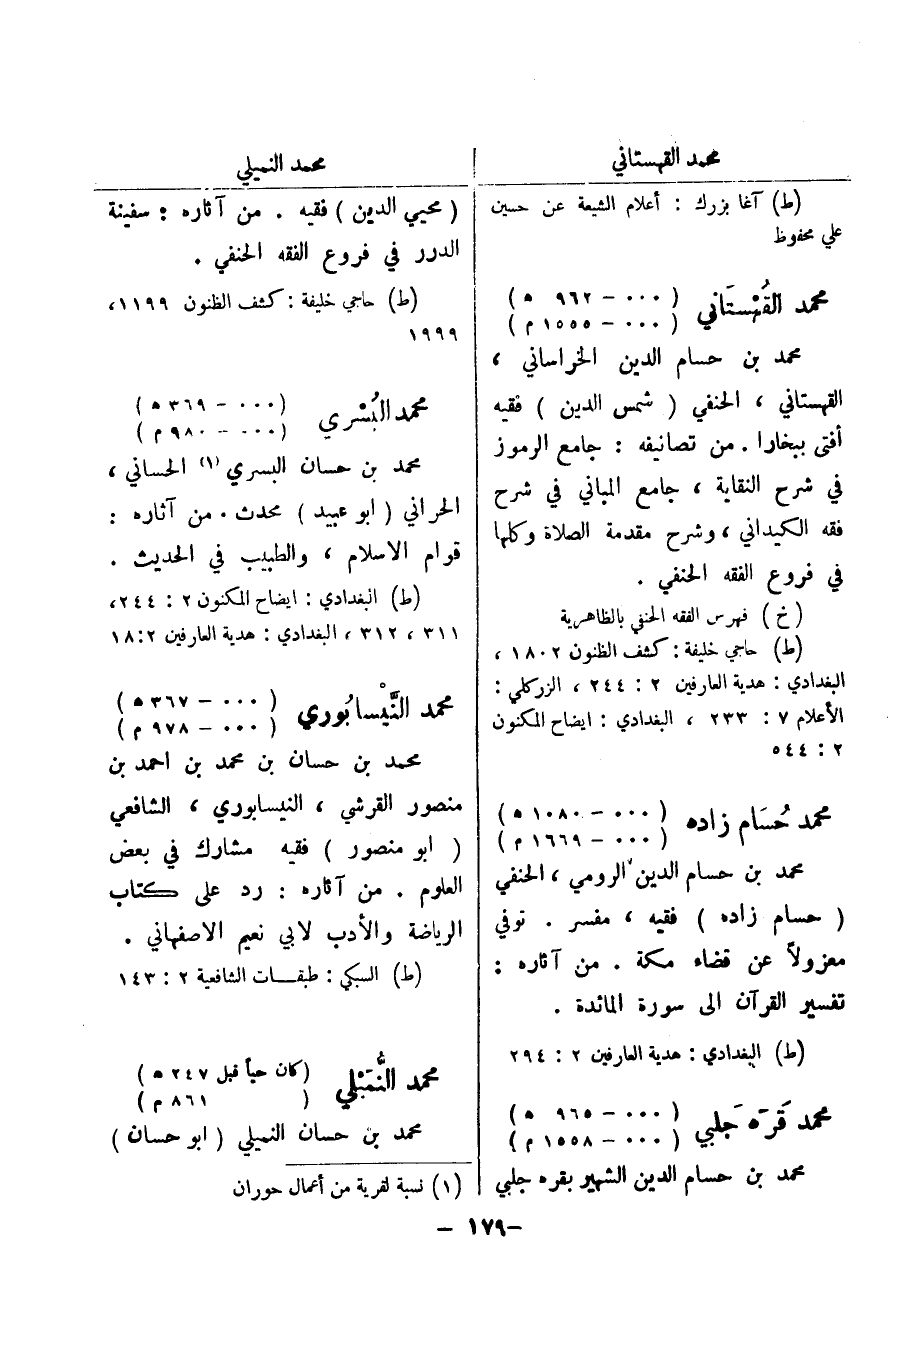 محمد القهستاني
(ط) آغا بزرك : أعلام الشيعة عن حسين
علي محفوظ
محمد القُهُسْتَاني ( ٠٠٠ – ٩٦٢ ه )
( ٠٠٠ – ١٥٥٥ م )
محمد بن حسام الدين الخراساني ،
القهستاني ، الحنفي ( شمس الدين ) فقيه
أفتى ببخارا . من تصانيفه : جامع الرموز
في شرح النقاية ، جامع المباني في شرح
فقه الكيداني ، وشرح مقدمة الصلاة وكلها
في فروع الفقه الحنفي .
( خ ) فهرس الفقه الحنفي بالظاهرية
(ط) حاجي خليفة : كشف الظنون ١٨٠٢ ،
البغدادي : هدية العارفين ٢ : ٢٤٤ ، الزركلي :
الأعلام ٧ : ٢٣٣ ، البغدادي : ايضاح المكنون
٢ : ٥٤٤
محمد حُسَام زاده ( ٠٠٠ – ١٠٨٠ ه )
( ٠٠٠ – ١٦٦٩ م )
محمد بن حسام الدين الرومي ، الحنفي
( حسام زاده ) فقيه ، مفسر . توفي
معزولاً عن قضاء مكة . من آثاره :
تفسير القرآن الى سورة المائدة .
(ط) البغدادي : هدية العارفين ٢ : ٢٩٤
محمد قَرَه جَلبي ( ٠٠٠ – ٩٦٥ ه )
( ٠٠٠ – ١٥٥٨ م )
محمد بن حسام الدين الشهير بقره جلبي
محمد النميلي
( محيي الدين ) فقيه . من آثاره : سفينة
الدرر في فروع الفقه الحنفي .
(ط) حاجي خليفة : كشف الظنون ١١٩٩ ،
١٩٩٩
محمد البُسْري ( ٠٠٠ – ٣٦٩ ه )
( ٠٠٠ – ٩٨٠ م )
محمد بن حسان البسري (١) الحساني ،
الحراني ( ابو عبيد ) محدث . من آثاره :
قوام الاسلام ، والطبيب في الحديث .
(ط) البغدادي : ايضاح المكنون ٢ : ٢٤٤ ،
٣١١ ، ٣١٢ ، البغدادي : هدية العارفين ٢ : ١٨
محمد النَّيْسابُوري ( ٠٠٠ – ٣٦٧ ه )
( ٠٠٠ – ٩٧٨ م )
محمد بن حسان بن محمد بن احمد بن
منصور القرشي ، النيسابوري ، الشافعي
( ابو منصور ) فقيه مشارك في بعض
العلوم . من آثاره : رد على كتاب
الرياضة والأدب لابي نعيم الاصفهاني .
(ط) السبكي : طبقات الشافعية ٢ : ١٤٣
محمد النُّمَيْلي ( كان حياً قبل ٢٤٧ ه )
( ٨٦١ م )
محمد بن حسان النميلي ( ابو حسان )
(١) نسبة لقرية من أعمال حوران
– ١٧٩ –